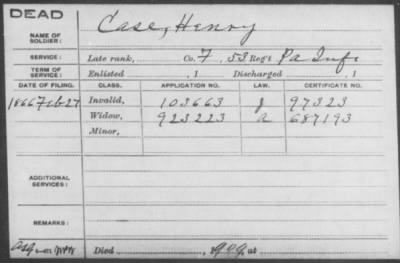 DEAD
NAME OF SOLDIER: Case, Henry
SERVICE: Late rank, Co. F, 53 Reg't Pa Inf.
TERM OF SERVICE: Enlisted , 1 Discharged , 1
DATE OF FILING. CLASS. APPLICATION NO. LAW. CERTIFICATE NO.
1866 Feb 27 Invalid, 103663 J 97323
Widow, 923223 a 687193
Minor,
ADDITIONAL SERVICES:
REMARKS:
Died 1909, at